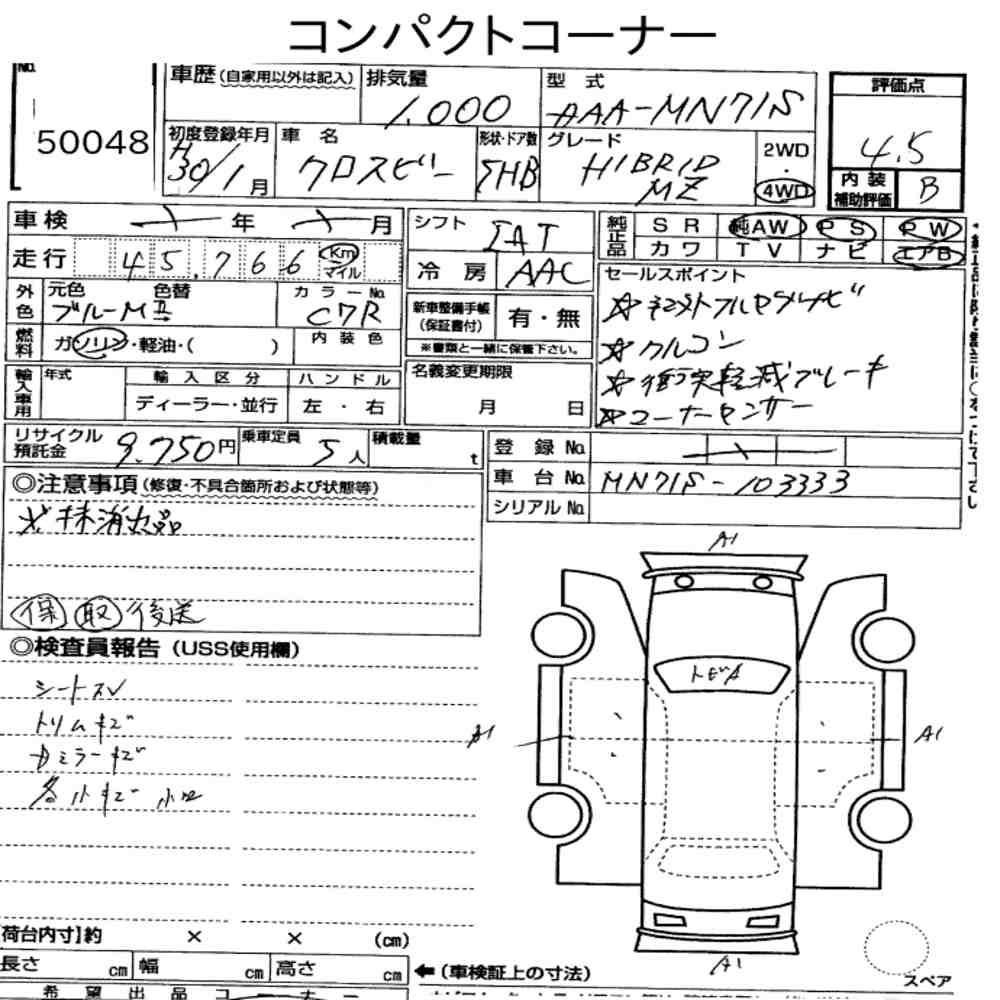 コンパクトコーナー
No.
50048
車歴 (自家用以外は記入)
排気量
1.000
型式
AAA-MN71S
評価点
4.5
内装補助評価 B
初度登録年月
H30/1月
車名
クロスビー
形状・ドア数
5HB
グレード
HIBRID MZ
2WD
・
4WD
車検 年 月
走行 45.766 Km マイル
外色
元色 色替
ブルーMⅡ
カラーNo.
C7R
燃料 ガソリン・軽油・( )
内装色
輸入車用
年式
輸入区分
ディーラー・並行
ハンドル
左・右
シフト
IAT
冷房 AAC
新車整備手帳(保証書付) 有・無
※書類と一緒に保管下さい。
名義変更期限
月 日
純正品
SR 純AW PS PW
カワ TV ナビ エアB
セールスポイント
☆クルコン
☆衝突軽減ブレーキ
☆コーナーセンサー
リサイクル預託金 9.750円
乗車定員 5人
積載量 t
登録No.
車台No. MN71S-103333
シリアルNo.
◎注意事項(修復・不具合箇所および状態等)
保 取 後送
◎検査員報告(USS使用欄)
シートスレ
トリムキズ
各小キズ 小凹
A1
トビA
A1
A1
A1
スペア
荷台内寸】約 × × (cm)
長さ cm 幅 cm 高さ cm
(車検証上の寸法)